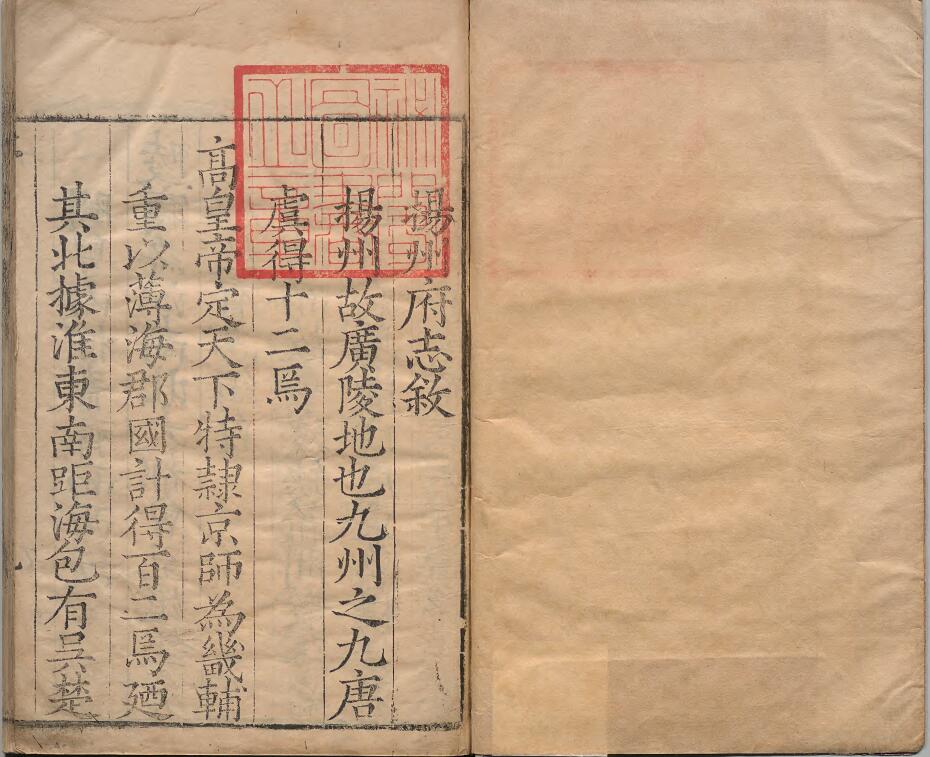 揚州府志敘
揚州故廣陵地也九州之九唐
虞得十二焉
高皇帝定天下特隷京師為畿輔
重以薄海郡國計得百二焉廼
其北據淮東南距海包有吴楚